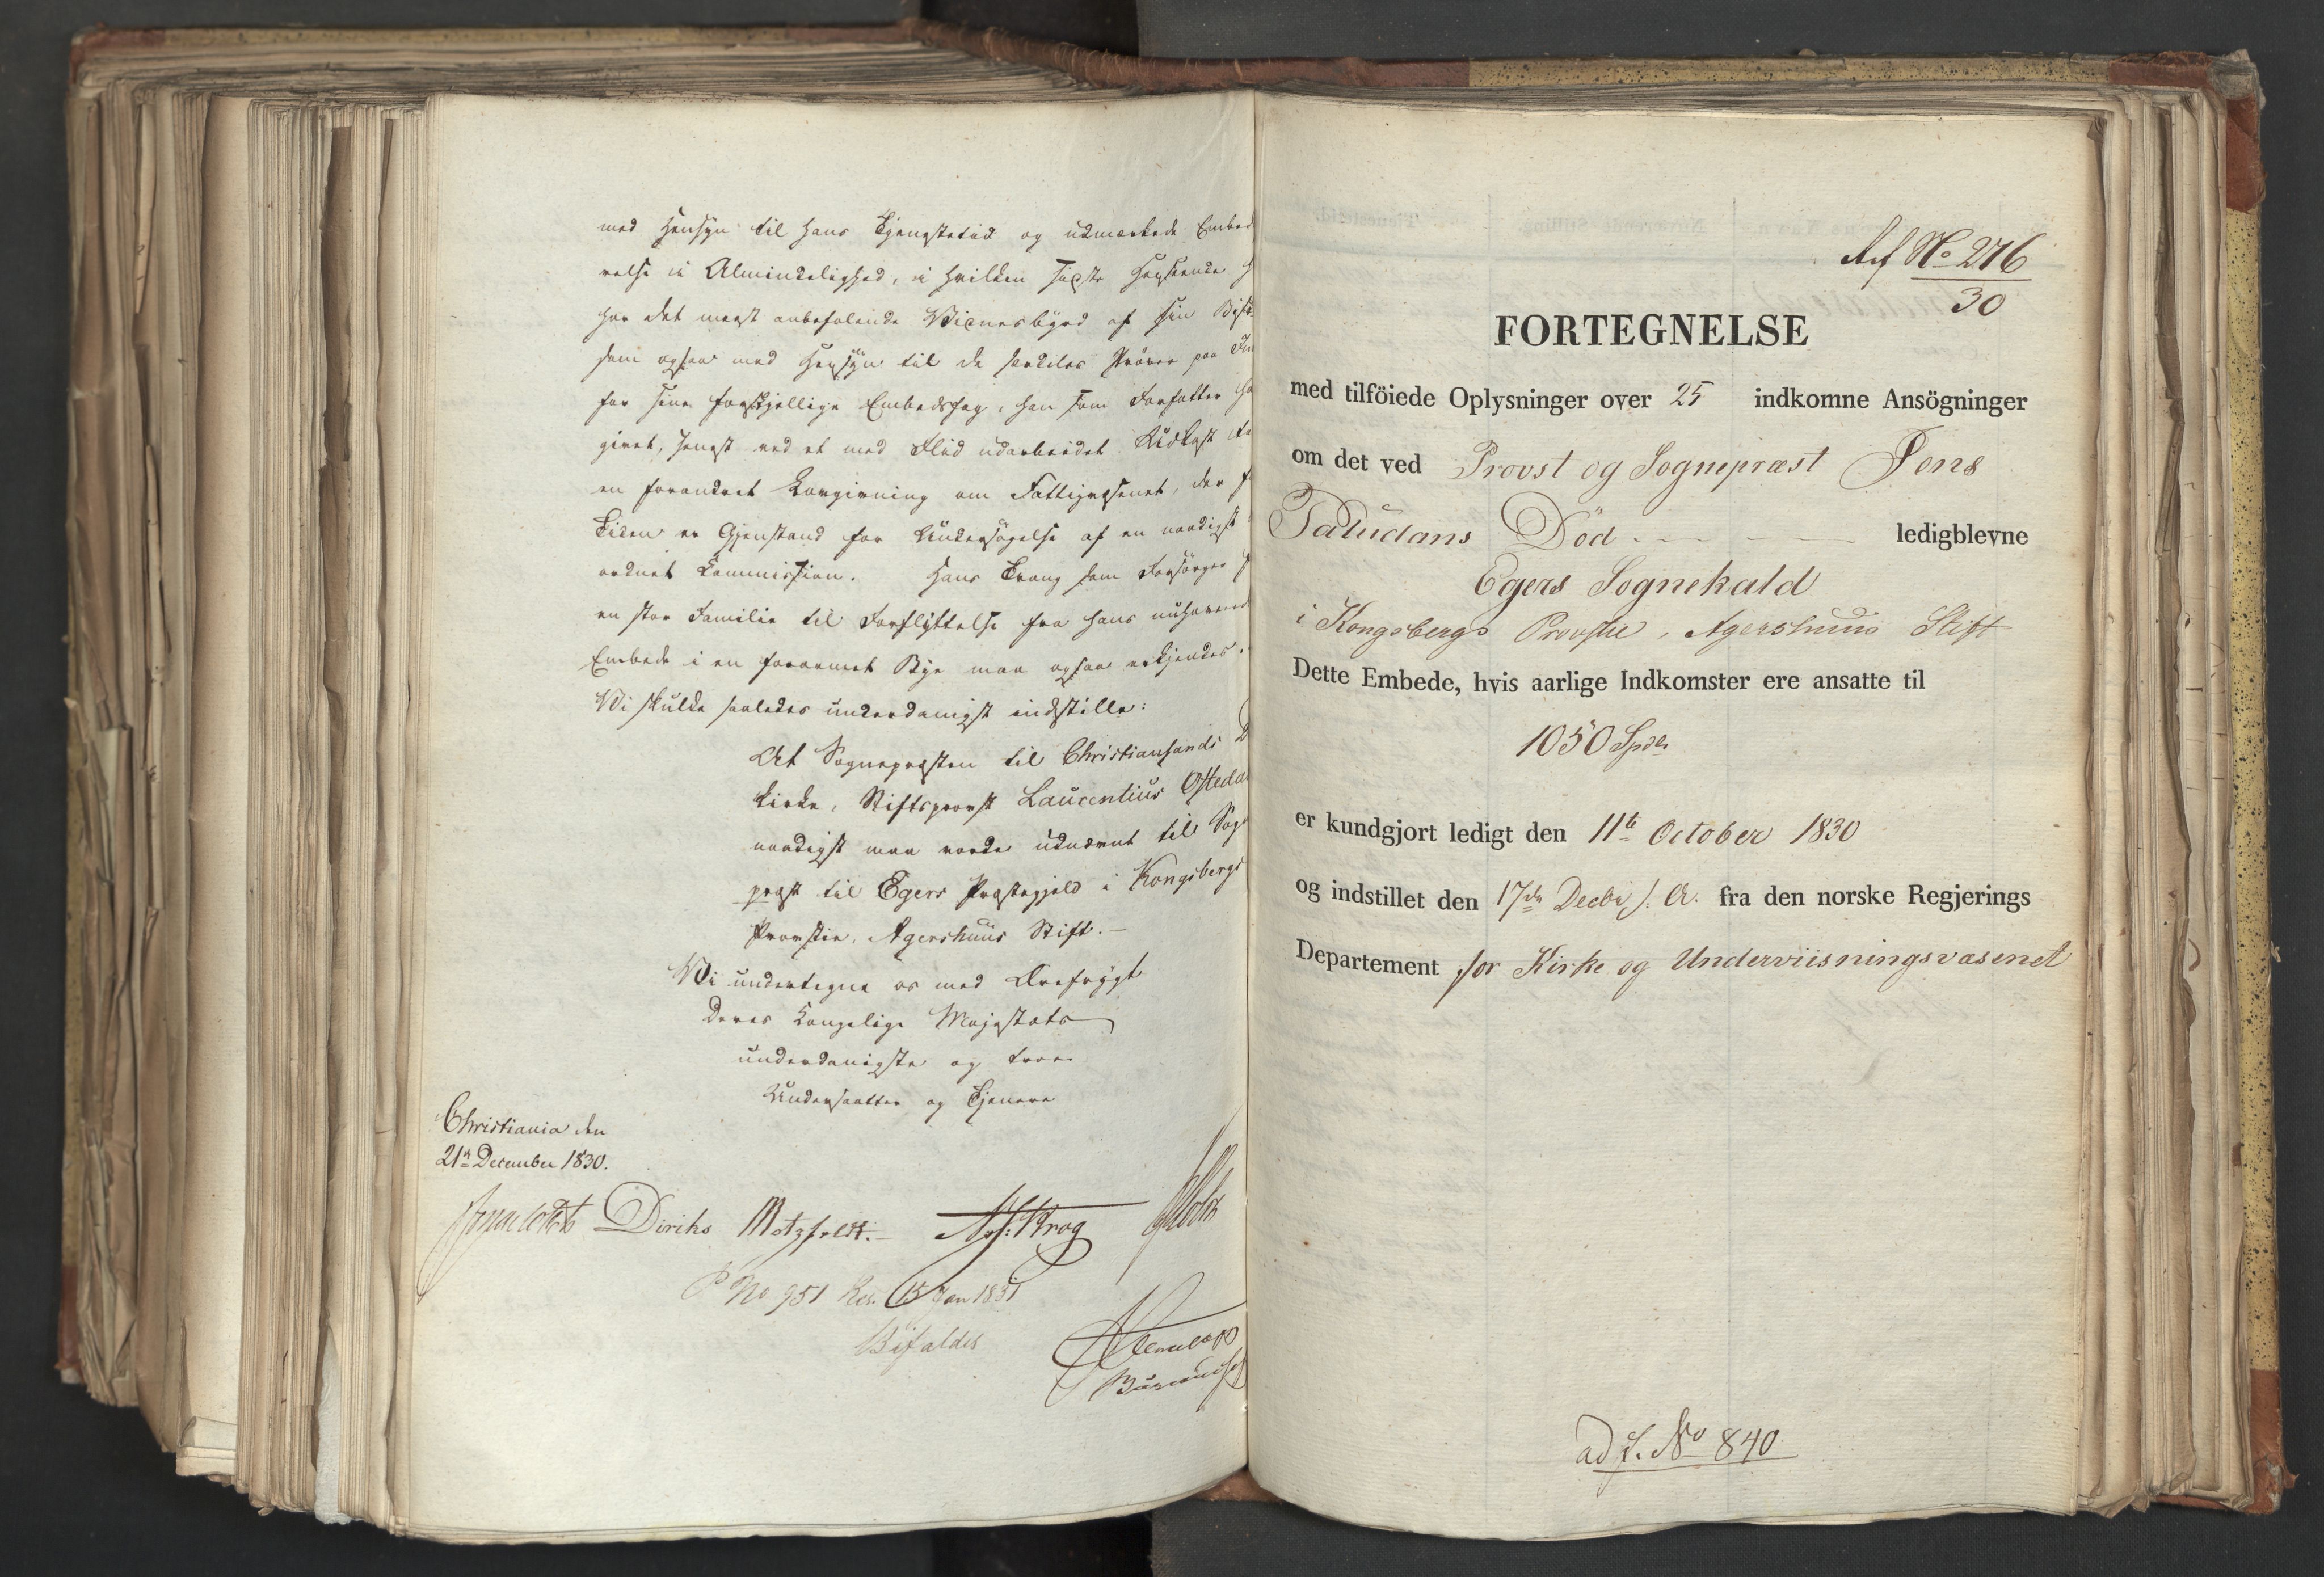 med Hensyn til hans Tjenestetid og udmærkede Embeds
relse i Almindelighed, i hvilken sidste Henseende
har det meest anbefalende Vidnesbyrd af sin Bisk
som ogsaa med Hensyn til de særdeles Prøver paa
for sine forskjellige Embedsfag, han som Forfatter ha
givet, senest ved et med Flid udarbeidet Udkast
en forandret Lovgivning om Fattigvæsenet, der
Tiden er Gjenstand for Undersøgelse af en naadigst
ordnet Commission. Hans Trang som Forsørger
en stor Familie til Forflyttelse fra hans nuhavend
Embede i en forarmet Bye maa ogsaa erkjendes.
Vi skulde saaledes underdanigst indstille:
At Sognepræsten til Christiansands D
kirke, Stiftsprovst Laurentius Oftedal
naadigst maa vorde udnævnt til Sog
præst til Egers Præstegjeld i Kongsbergs
Provstie, Agershuus Stift.
Vi undertegne os med Ærefrygt
Deres Kongelige Majestæts
underdanigste og troe
Undersaatter og Tjenere
Christiania den
21de December 1830.
Diriks Motzfeldt. Krog Holst
No 951 Res. 15 Jan 1831
Bifaldes
Ref No 276
30
FORTEGNELSE
med tilföiede Oplysninger over 25 indkomne Ansögninger
om det ved Provst og Sognepræst Jens
Paludans Död ledigblevne
Egers Sognekald
i Kongsbergs Provstie, Agershuus Stift
Dette Embede, hvis aarlige Indkomster ere ansatte til
1050 Spdlr
er kundgjort ledigt den 11te October 1830
og indstillet den 17de Decbr s. A. fra den norske Regjerings
Departement for Kirke og Underviisningsvæsenet
ad J. No 840